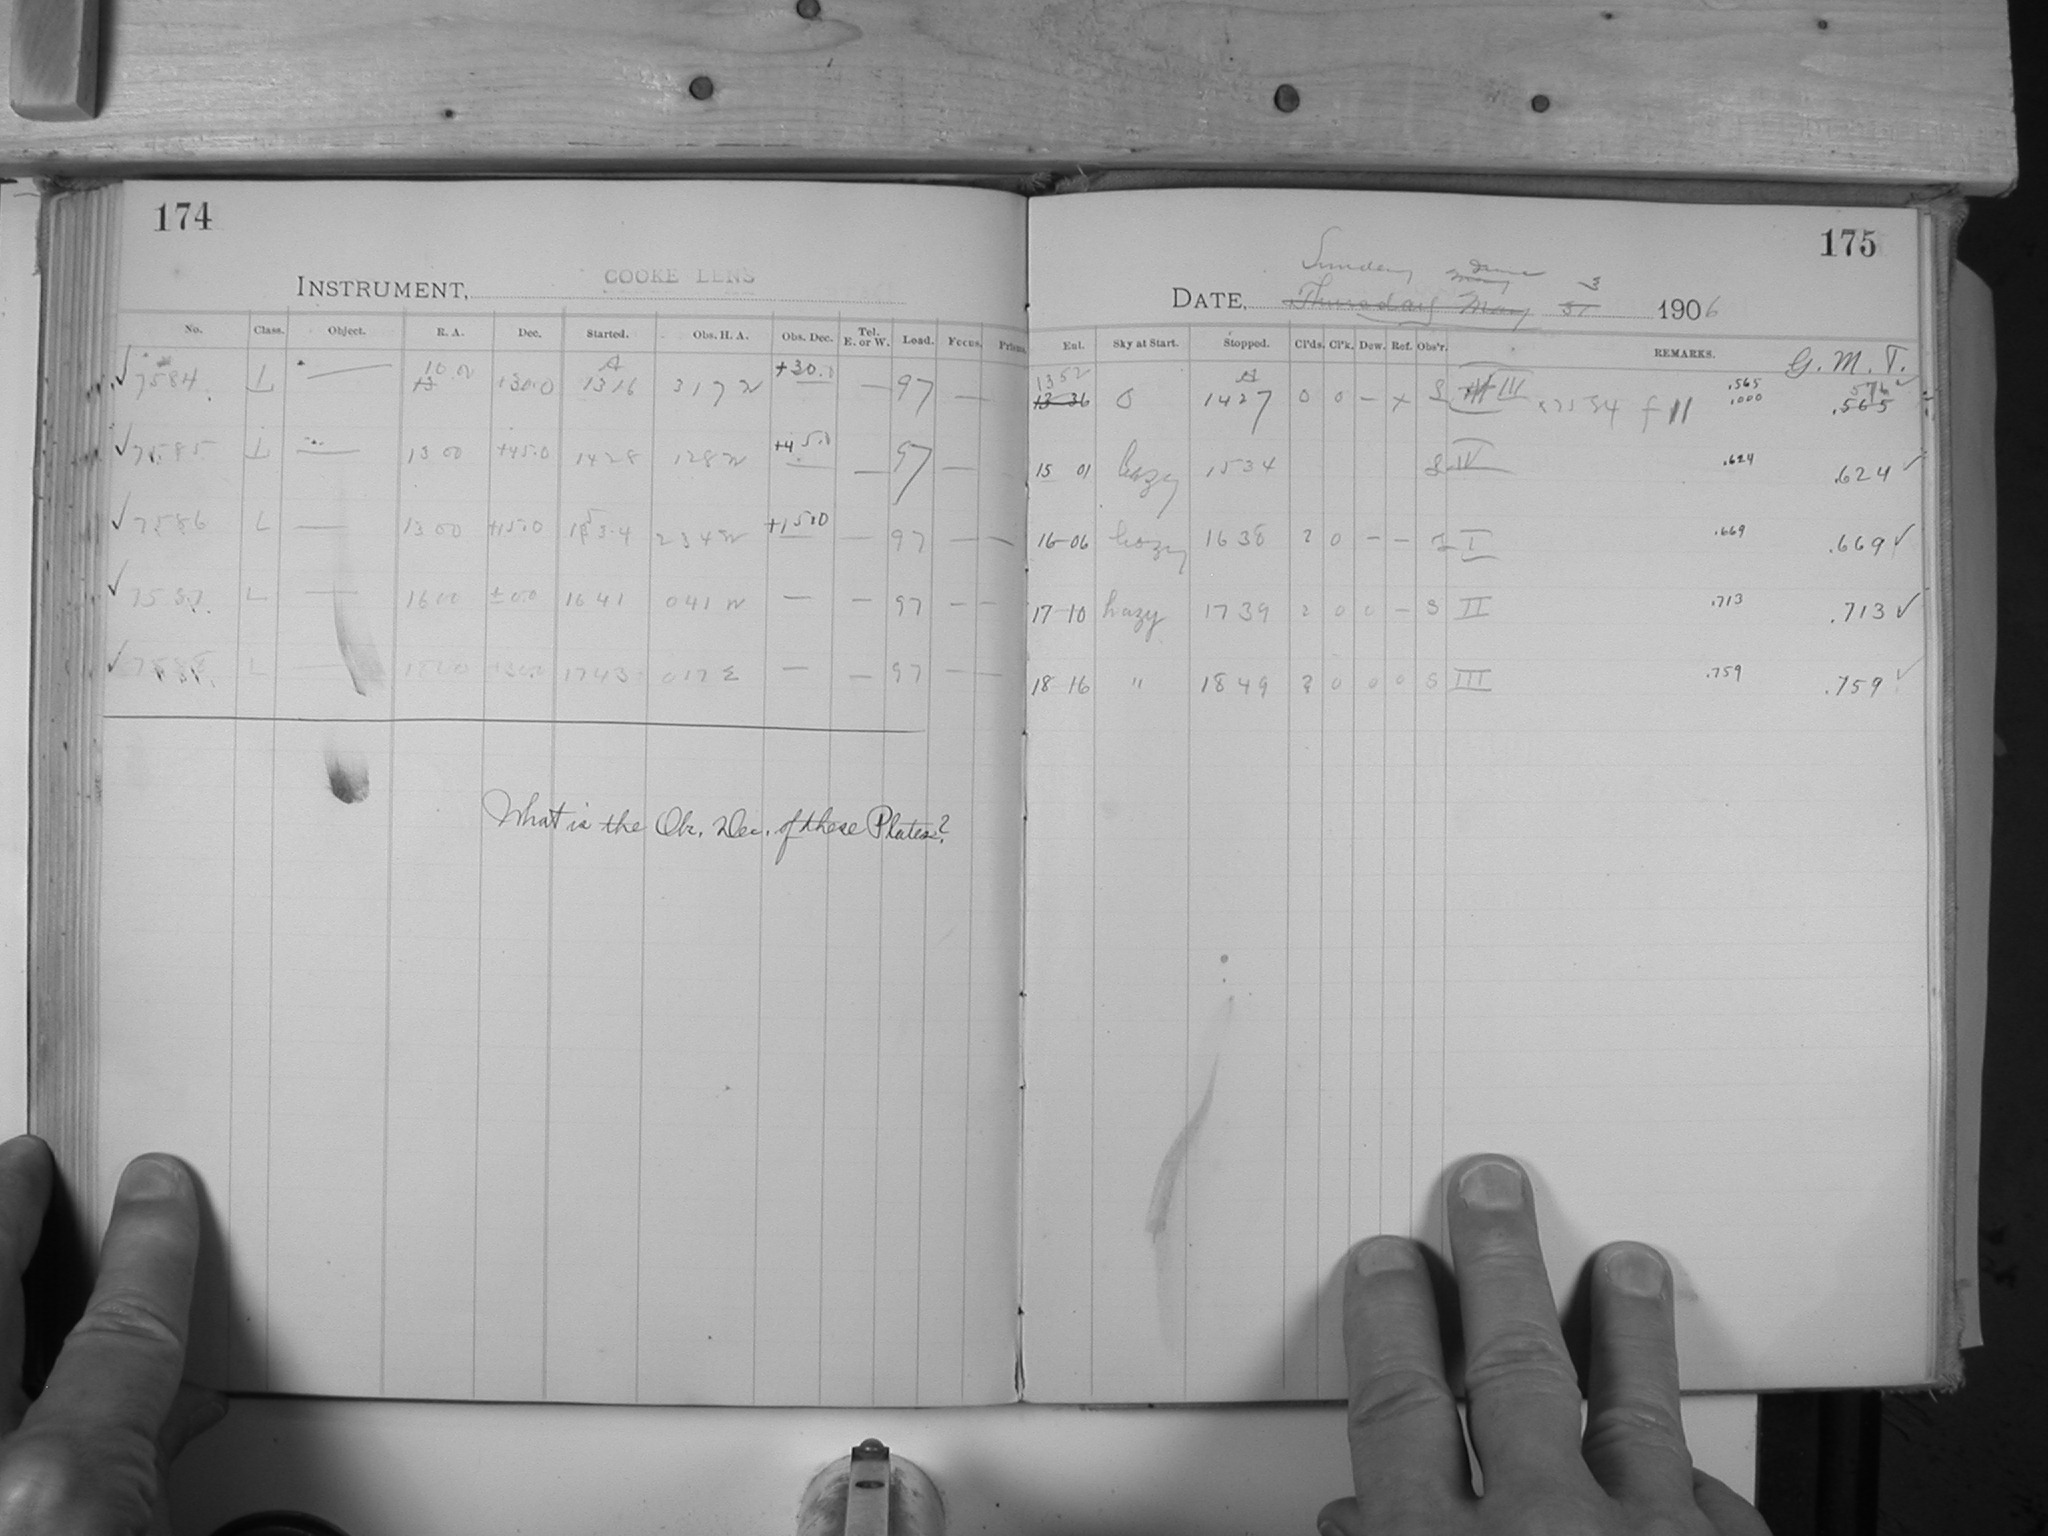 174
INSTRUMENT, COOKE LENS
No. Class. Object. R. A. Dec. Started. Obs. H. A. Obs. Dec. Tel. E. or W. Load. Focus. Prisms.
7584 L — 10.0 +30.0 1316 317 W +30.0 — 97 —
7585 L — 13 00 +45.0 1428 128 W +45.0 — 97 —
7586 L — 13 00 +15.0 234 W +15.0 — 97 — —
7587 L — 16 00 ±0.0 1641 041 W — — 97 — —
7588 L — 1743 017 E — — 97 — —
What is the Obs. Dec. of these Plates?
175
Sunday June 3
DATE, Thursday May 31 1906
Ent. Sky at Start. Stopped. Cl'ds. Cl'k. Dew. Ref. Obs'r. REMARKS. G. M. T.
1352
13 36 0 1427 0 0 — x S III .565 .000 .576 .565
15 01 hazy 1534 S IV .624 .624
16-06 hazy 1638 2 0 — — S I .669 .669
17-10 hazy 1739 2 0 0 — S II .713 .713
18-16 " 1849 2 0 0 0 S III .759 .759